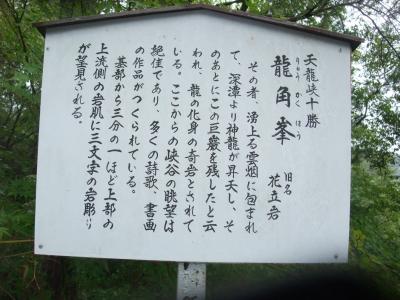 天龍峡十勝
りゅう かく ほう
龍角峯 旧名 花立岩
その昔、湧上る雲烟に包まれ
て、深潭より神龍が昇天し、そ
のあとにこの巨巌を残したと云
われ、龍の化身の奇岩とされて
いる。ここからの峡谷の眺望は
絶佳であり、多くの詩歌、書画
の作品がつくられている。
基部から三分の一ほど上部の
上流側の岩肌に三文字の岩彫り
が望見される。